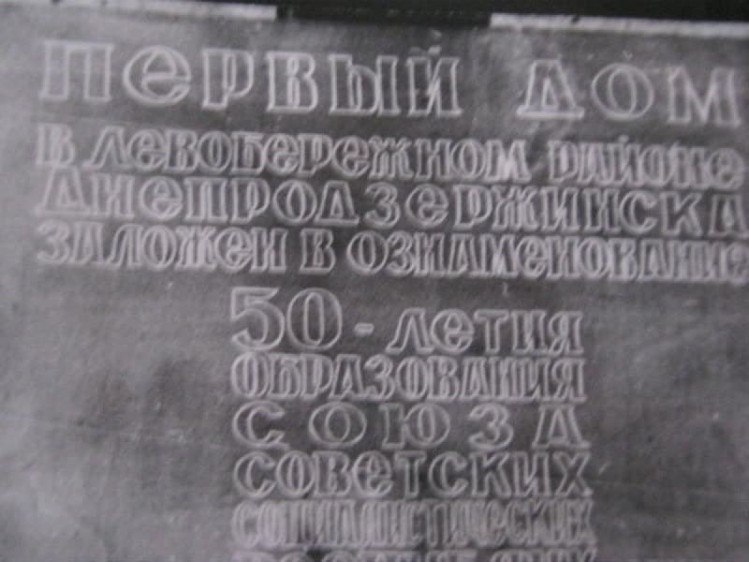 ПЕРВЫЙ ДОМ
В ЛЕВОБЕРЕЖНОМ РАЙОНЕ
ДНЕПРОДЗЕРЖИНСКА
ЗАЛОЖЕН В ОЗНАМЕНОВАНИЕ
50-ЛЕТИЯ
ОБРАЗОВАНИЯ
СОЮЗА
СОВЕТСКИХ
СОЦИАЛИСТИЧЕСКИХ